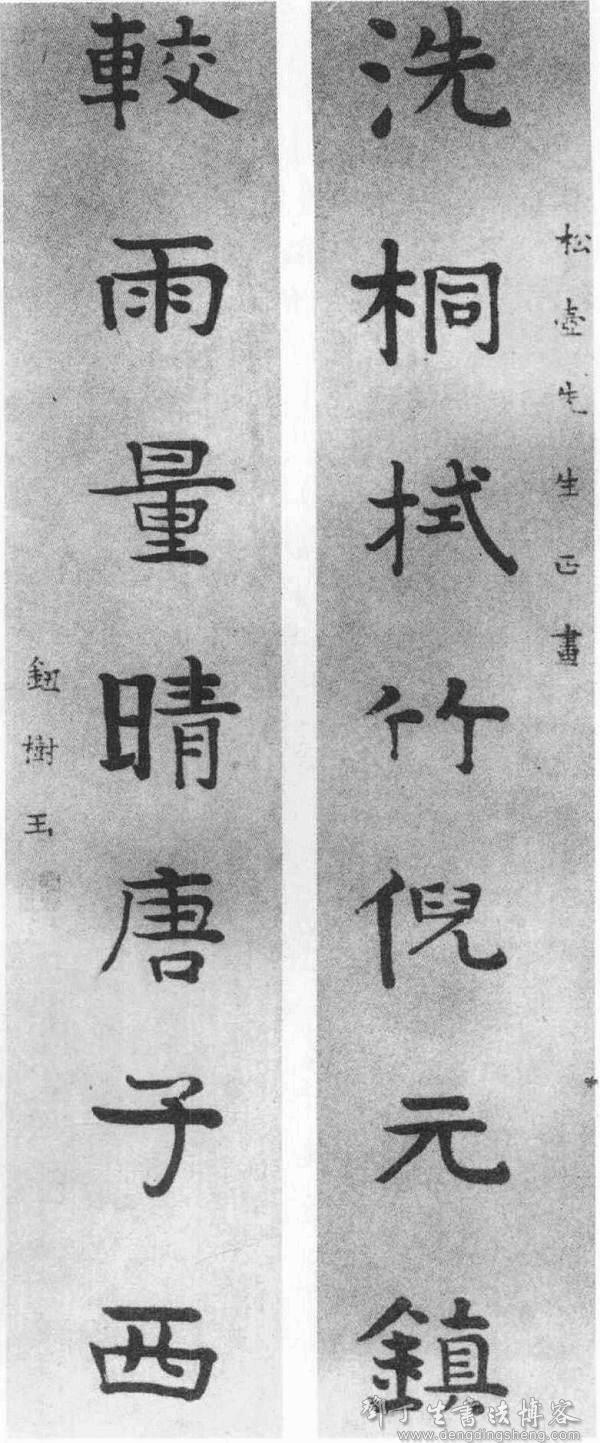 松壺先生正畫
洗桐拭竹倪元鎮
較雨量晴唐子西
鈕樹玉
鄧丁生書法博客
www.dengdingsheng.com